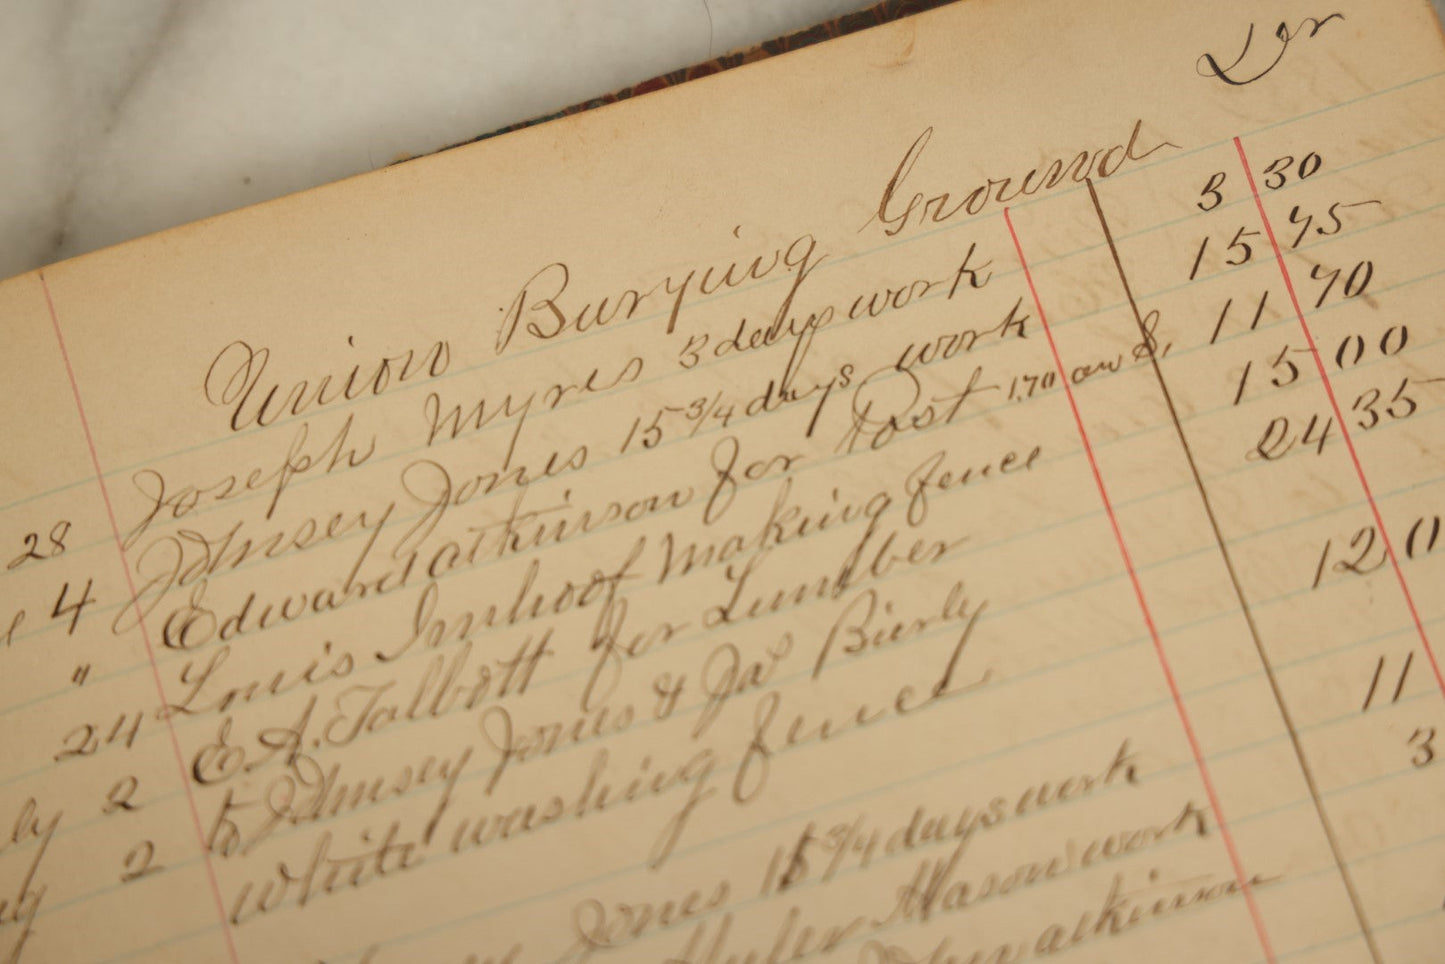 Dr
Union Burying Ground
28 Joseph Myres 3 days work 3 30
4 Johnsey Jones 15 3/4 days work 15 75
" Edward atkinson for Post 1.70 an 8, 11 70
24 Louis Imhoof Making fence 15 00
ly 2 E. A. Talbott for Lumber 24 35
2 to Johnsey Jones & Jas Bierly
White washing fence 12 0
Jones 15 3/4 days work 11
Mason work 3
atkinson